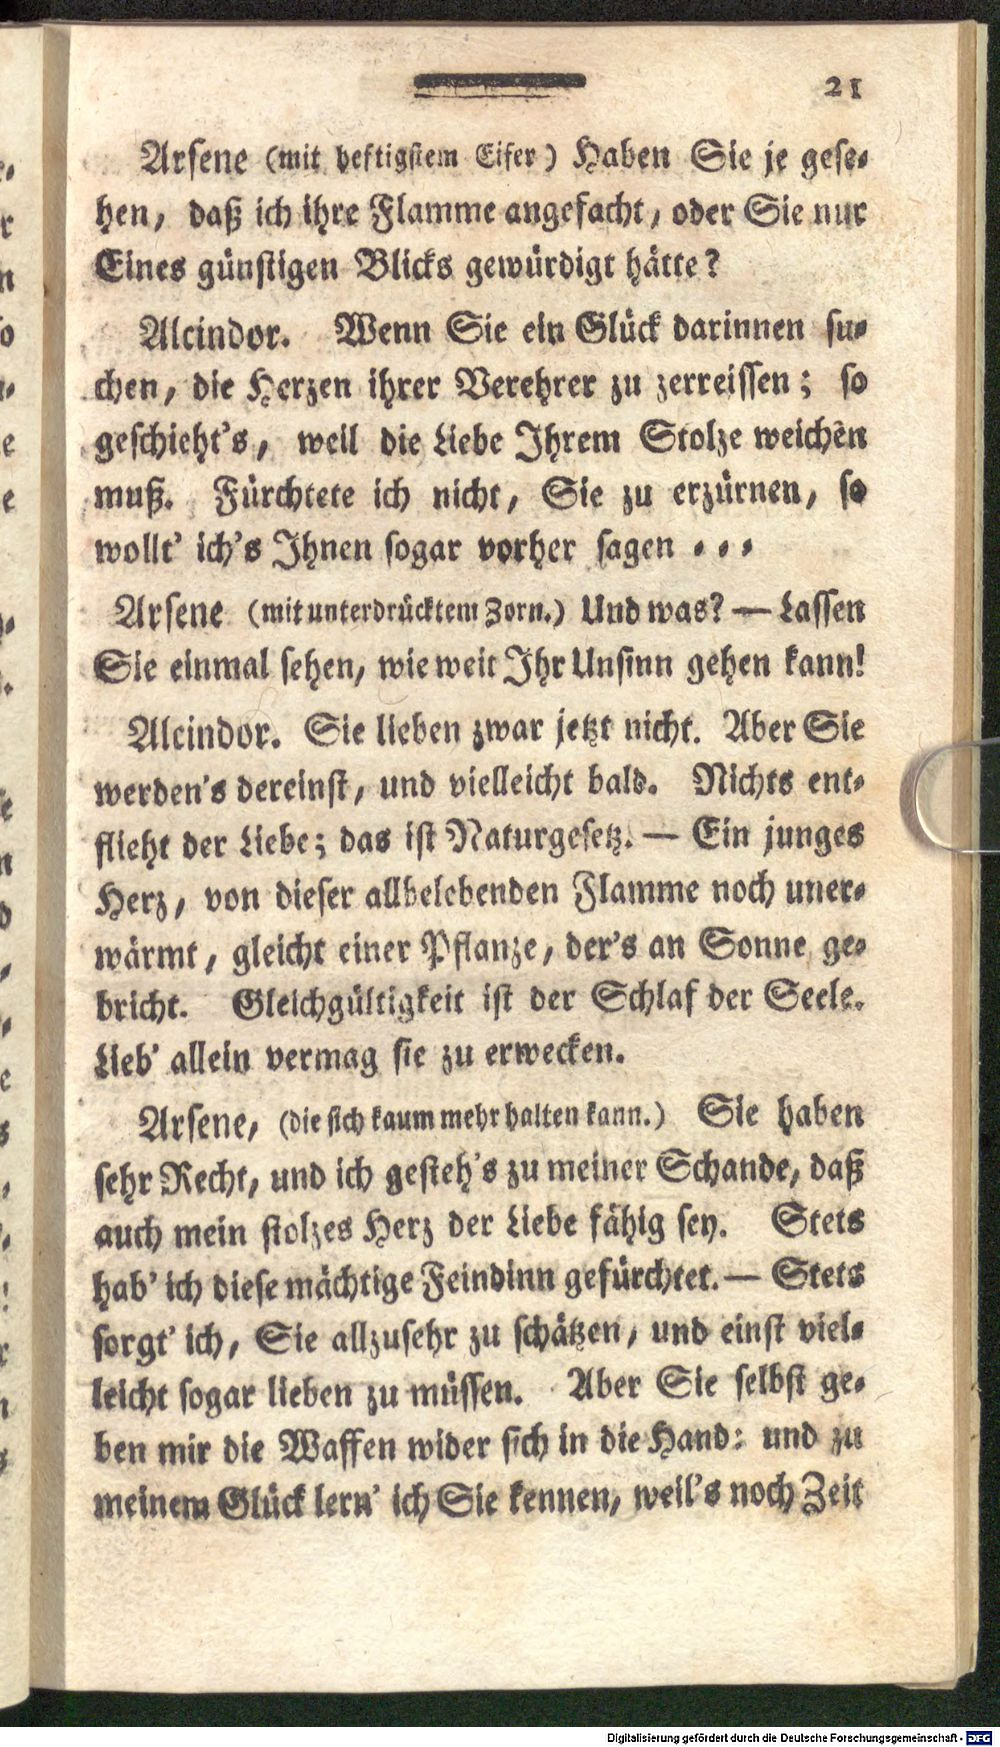 21
Arsene (mit heftigstem Eifer) Haben Sie je gese-
hen, daß ich ihre Flamme angefacht, oder Sie nur
Eines günstigen Blicks gewürdigt hätte?
Alcindor. Wenn Sie ein Glück darinnen su-
chen, die Herzen ihrer Verehrer zu zerreissen; so
geschieht's, weil die Liebe Ihrem Stolze weichen
muß. Fürchtete ich nicht, Sie zu erzürnen, so
wollt' ich's Ihnen sogar vorher sagen - - -
Arsene (mit unterdrücktem Zorn.) Und was? — Lassen
Sie einmal sehen, wie weit Ihr Unsinn gehen kann!
Alcindor. Sie lieben zwar jetzt nicht. Aber Sie
werden's dereinst, und vielleicht bald. Nichts ent-
flieht der Liebe; das ist Naturgesetz. — Ein junges
Herz, von dieser allbelebenden Flamme noch uner-
wärmt, gleicht einer Pflanze, der's an Sonne ge-
bricht. Gleichgültigkeit ist der Schlaf der Seele.
Lieb' allein vermag sie zu erwecken.
Arsene, (die sich kaum mehr halten kann.) Sie haben
sehr Recht, und ich gesteh's zu meiner Schande, daß
auch mein stolzes Herz der Liebe fähig sey. Stets
hab' ich diese mächtige Feindinn gefürchtet. — Stets
sorgt' ich, Sie allzusehr zu schätzen, und einst viel-
leicht sogar lieben zu müssen. Aber Sie selbst ge-
ben mir die Waffen wider sich in die Hand: und zu
meinem Glück lern' ich Sie kennen, weil's noch Zeit
Digitalisierung gefördert durch die Deutsche Forschungsgemeinschaft - DFG